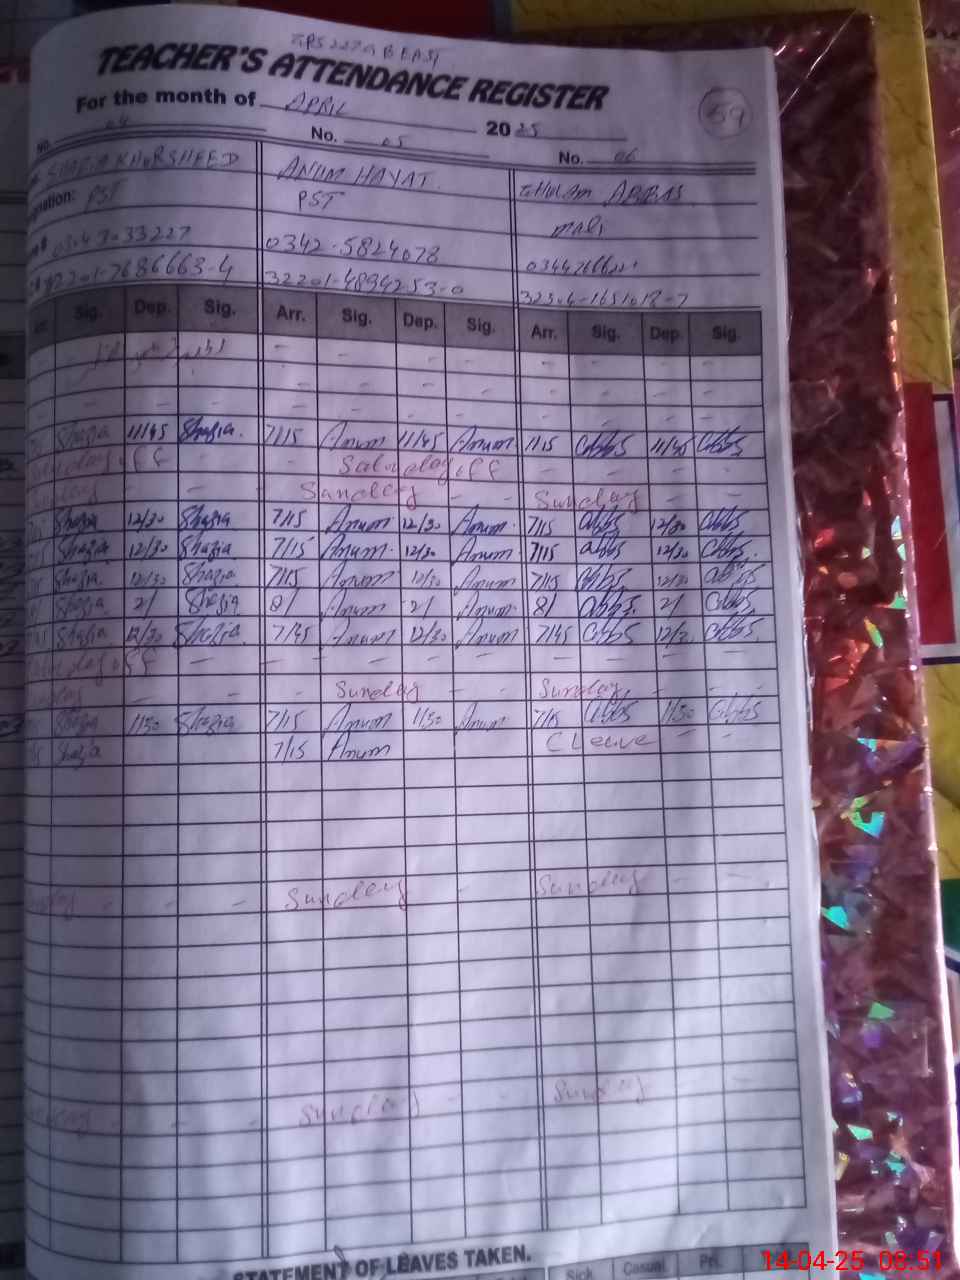 TEACHER'S ATTENDANCE REGISTER
For the month of APRIL 2025
59
No. 04 No. 05 No. 06
SHAZIA KHURSHEED ANUM HAYAT GHULAM ABBAS
PST PST mali
0342-5824078
32201-7686663-4 32201-4894253-0
Sig. Dep. Sig. Arr. Sig. Dep. Sig. Arr. Sig. Dep. Sig.
Shazia 11/45 Shazia. 7/15 Anum 11/45 Anum 11/15 abbs 11/45 abbs
Saturday off
Sunday Sunday
Shazia 12/30 Shazia 7/15 Anum 12/30 Anum 7/15 abbs 12/30 abbs
Shazia 12/30 Shazia 7/15 Anum 12/30 Anum 7/15 abbs 12/30 abbs
Shazia 12/30 Shazia 7/15 Anum 12/30 Anum 7/15 abbs 12/30 abbs
Shazia 2/ Shazia 8/ Anum 2/ Anum 8/ abbs 2/ abbs
Shazia 12/30 Shazia 7/45 Anum 12/30 Anum 7/45 abbs abbs
Sunday Sunday
Shazia 11/50 Shazia 7/15 Anum 11/50 Anum 7/15 abbs 11/50 abbs
Shazia 7/15 Anum C Leave
Sunday Sunday
Sunday Sunday
STATEMENT OF LEAVES TAKEN.
Sick Casual Pri.
14-04-25 08:51